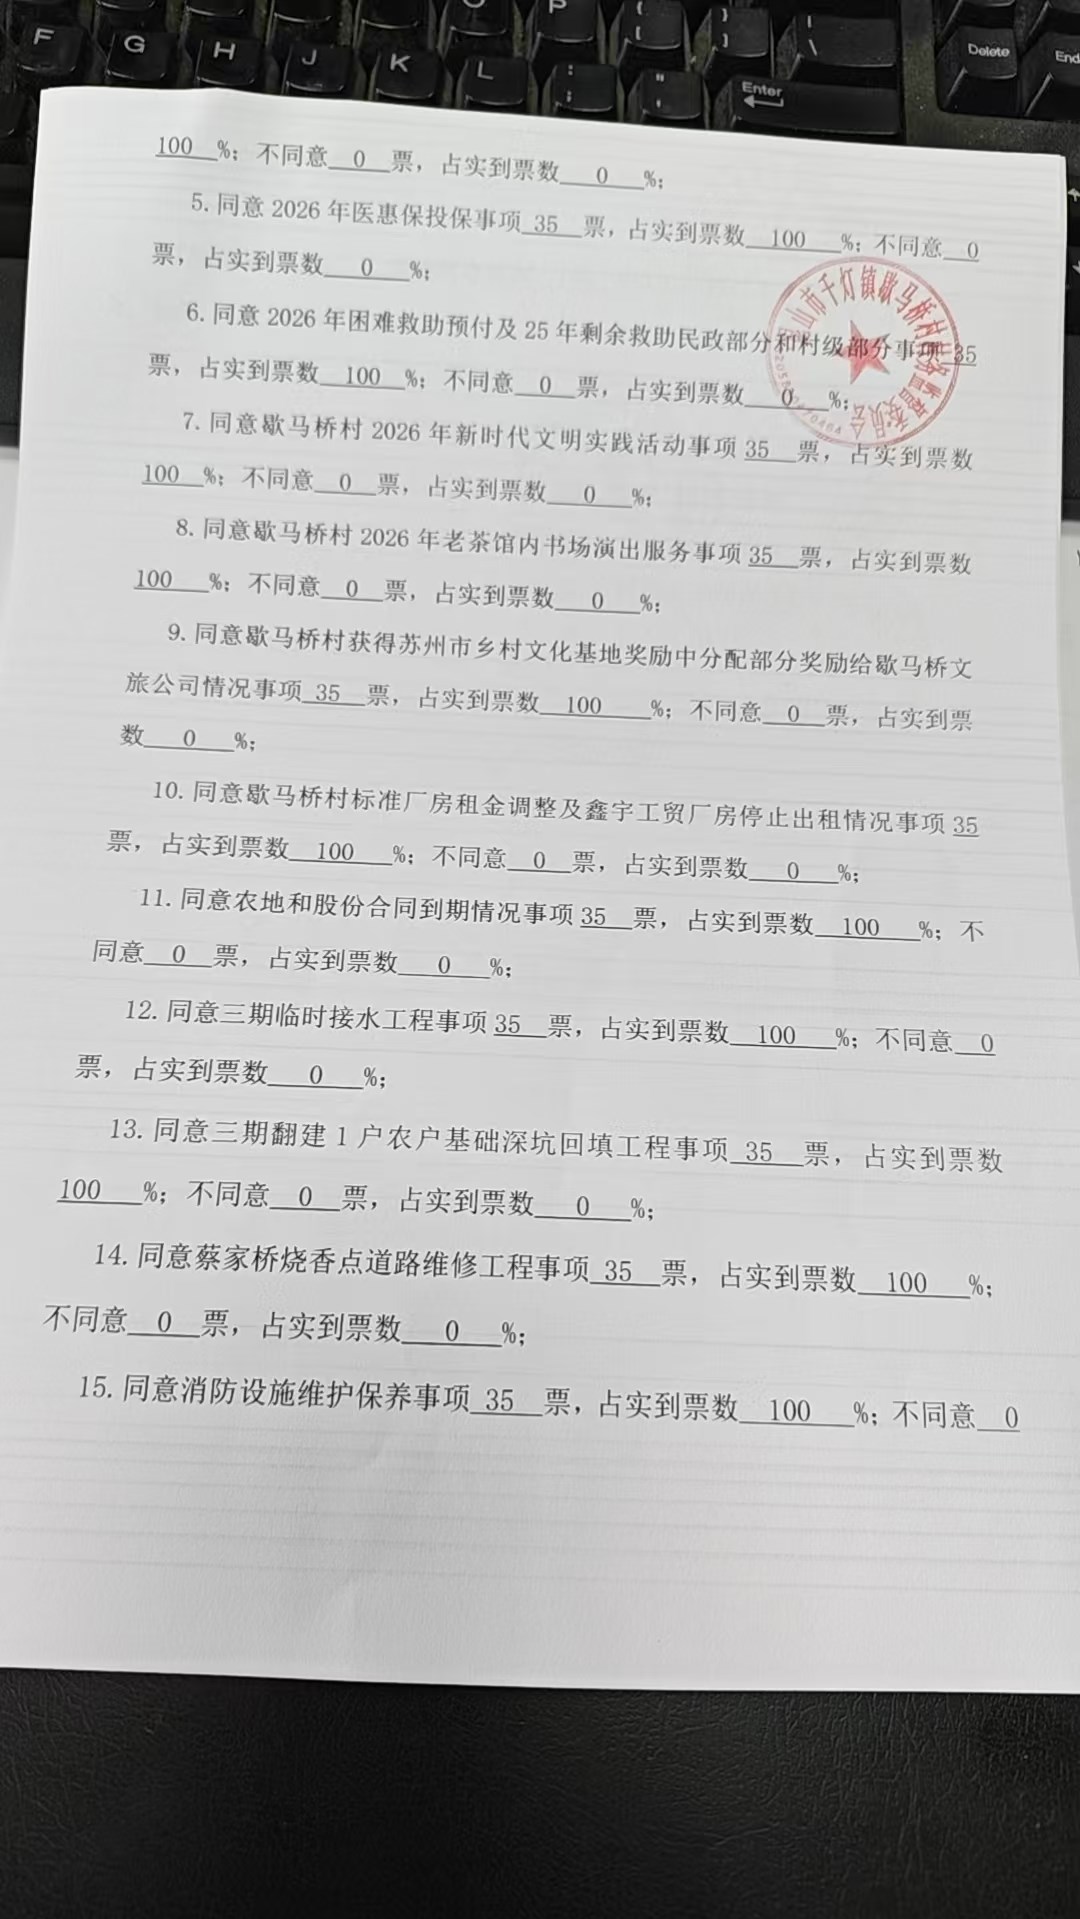 F G H J K L O P
Enter
Delete
End
100 %；不同意 0 票，占实到票数 0 %；
5. 同意 2026 年医惠保投保事项 35 票，占实到票数 100 %；不同意 0
票，占实到票数 0 %；
6. 同意 2026 年困难救助预付及 25 年剩余救助民政部分和村级部分事项 35
票，占实到票数 100 %；不同意 0 票，占实到票数 0 %；
7. 同意歇马桥村 2026 年新时代文明实践活动事项 35 票，占实到票数
100 %；不同意 0 票，占实到票数 0 %；
8. 同意歇马桥村 2026 年老茶馆内书场演出服务事项 35 票，占实到票数
100 %；不同意 0 票，占实到票数 0 %；
9. 同意歇马桥村获得苏州市乡村文化基地奖励中分配部分奖励给歇马桥文
旅公司情况事项 35 票，占实到票数 100 %；不同意 0 票，占实到票
数 0 %；
10. 同意歇马桥村标准厂房租金调整及鑫宇工贸厂房停止出租情况事项 35
票，占实到票数 100 %；不同意 0 票，占实到票数 0 %；
11. 同意农地和股份合同到期情况事项 35 票，占实到票数 100 %；不
同意 0 票，占实到票数 0 %；
12. 同意三期临时接水工程事项 35 票，占实到票数 100 %；不同意 0
票，占实到票数 0 %；
13. 同意三期翻建 1 户农户基础深坑回填工程事项 35 票，占实到票数
100 %；不同意 0 票，占实到票数 0 %；
14. 同意蔡家桥烧香点道路维修工程事项 35 票，占实到票数 100 %；
不同意 0 票，占实到票数 0 %；
15. 同意消防设施维护保养事项 35 票，占实到票数 100 %；不同意 0
山市千灯镇歇马桥村 监督委员会